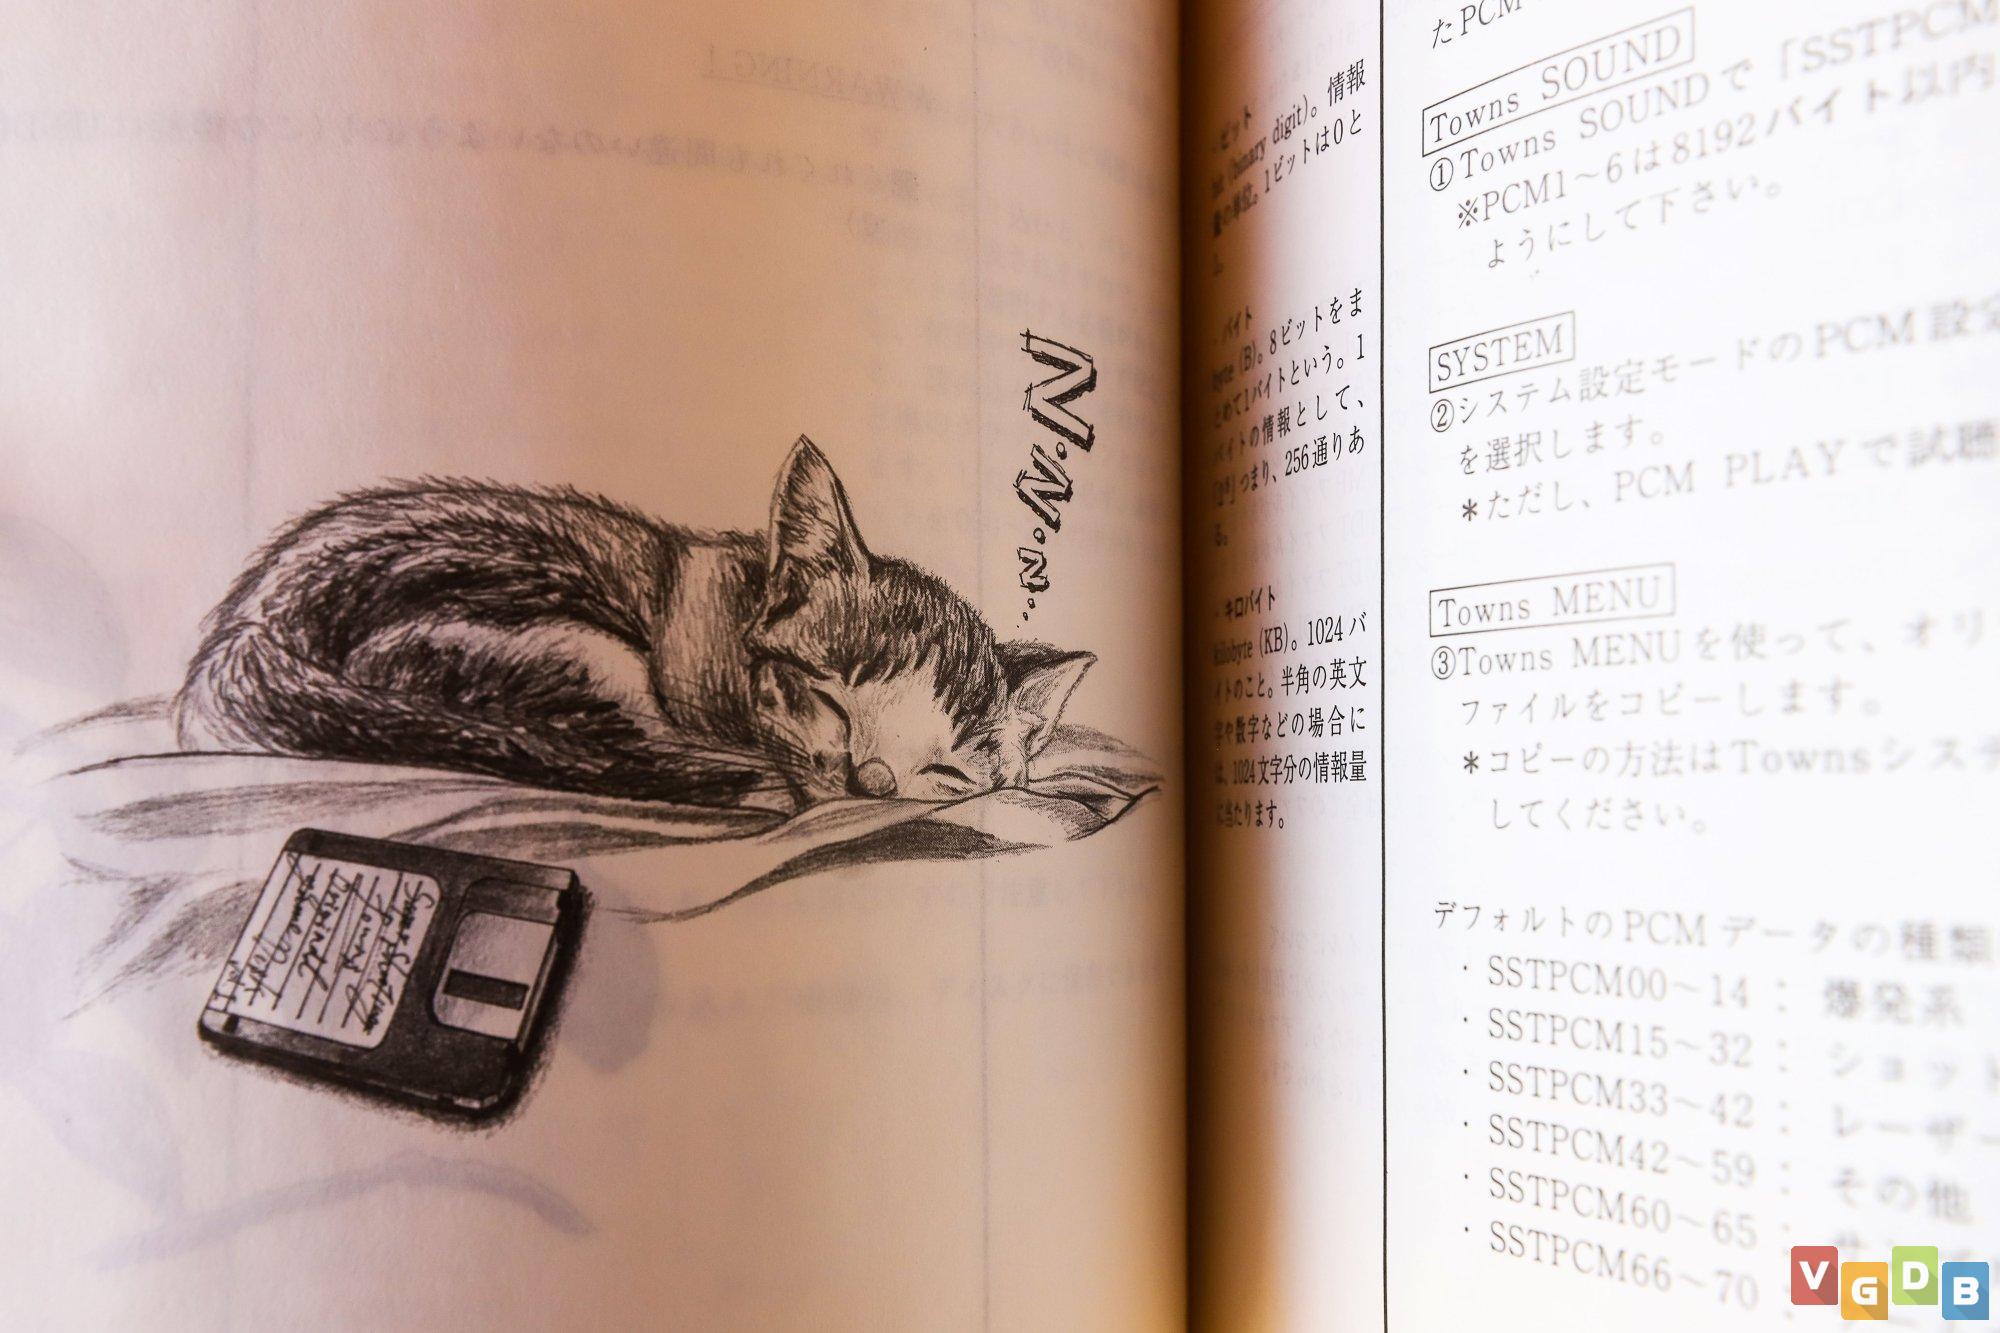 N・N・N...
・ビット
bit (binary digit)。情報
量の単位。1ビットは0と
・バイト
byte (B)。8ビットをま
とめて1バイトという。1
バイトの情報として、
つまり、256通りあ
る。
・キロバイト
kilobyte (KB)。1024バ
イトのこと。半角の英文
字や数字などの場合に
は、1024文字分の情報量
に当たります。
たPCM
Towns SOUND
①Towns SOUNDで「SSTPCM
※PCM1～6は8192バイト以内
ようにして下さい。
SYSTEM
②システム設定モードのPCM設定
を選択します。
＊ただし、PCM PLAYで試聴
Towns MENU
③Towns MENUを使って、オリ
ファイルをコピーします。
＊コピーの方法はTownsシステ
してください。
デフォルトのPCMデータの種類
・SSTPCM00～14：爆発系
・SSTPCM15～32：ショット
・SSTPCM33～42：レーザー
・SSTPCM42～59：その他
・SSTPCM60～65：
・SSTPCM66～70：
VGDB